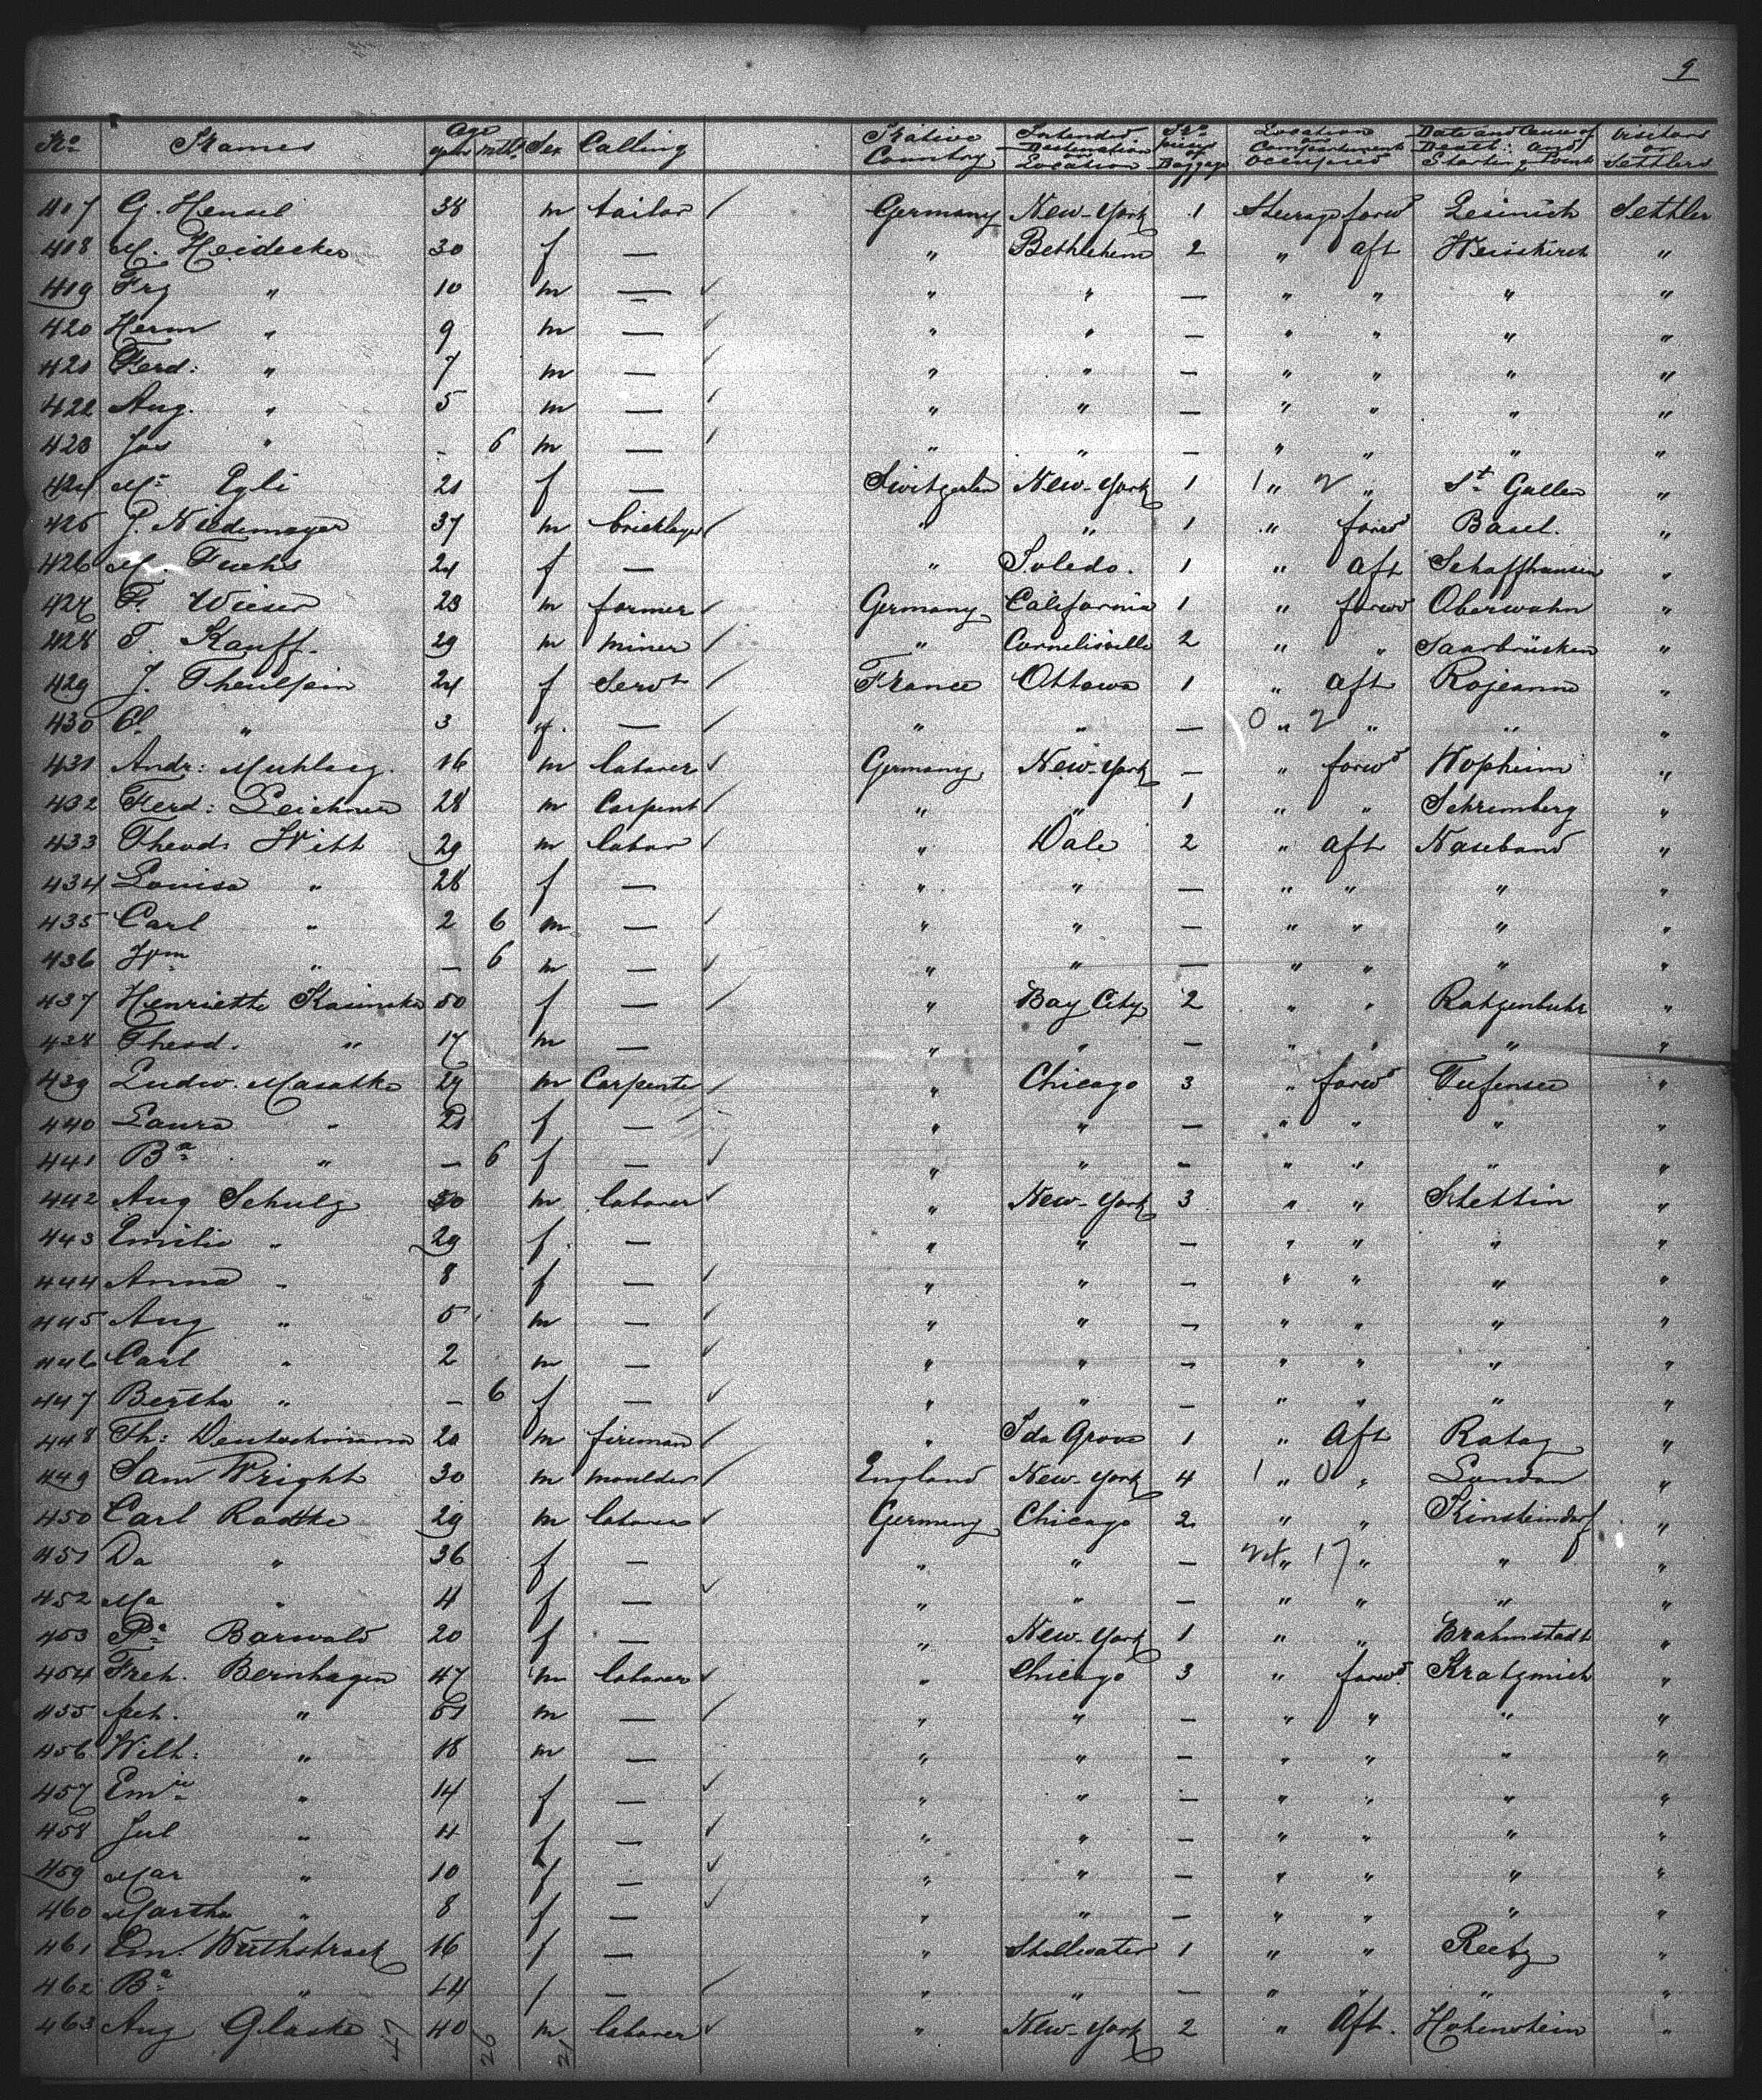 9
No Names Age years mths Sex Calling Native Country Intended Destination or Location No pieces of Baggage Location or Compartment occupied Date and Cause of Death: and Starting Point Visitors or Settlers
417 G. Hensel 38 m tailor / Germany New-York 1 Steerage forwd Settler
418 M. Heidecker 30 f — " Bethlehem 2 " aft Weisskirch "
419 Frz " 10 m — " " — " " " "
420 Herm " 9 m — " " — " " " "
421 Ferd: " 7 m — " " — " " " "
422 Aug. " 5 m — " " — " " " "
423 Jos " - 6 m — " " — " " " "
424 Ma Egli 21 f — Switzerlan New-York 1 1 " 2 " St Gallen "
425 P. Niedemeyer 37 m bricklayer / " " 1 " forwd Basel. "
426 M. Fuchs 24 f — " Toledo. 1 " aft Schaffhausen "
427 F. Wieser 23 m farmer Germany California 1 " forwd Oberwahn "
428 T. Kauff. 29 m miner / " Cornelisville 2 " " Saarbrücken "
429 J. 24 f Servt / France Ottawa 1 " aft Rojeanne "
430 Cl " 3 f. — / " " — 0 " 2 " " "
431 Andr: 16 m laborer Germany New-York — " forwd Wopheim "
432 Ferd: Leichner 28 m Carpent / " " 1 " " Schremberg "
433 Theod: Witt 29 m labor / " Dale 2 " aft Naseband "
434 Louisa " 28 f — " " — " " " "
435 Carl " 2 6 m — " " — " " " "
436 Wm " — 6 m — " " — " " " "
437 Henriette Kasimska 50 f — / " Bay City 2 " " Ratzenbuhr "
438 Theod. " 17 m — " " — " " " "
439 Ludw. Masatke 27 m Carpente / " Chicago 3 " forwd Tufensee "
440 Laura " 21 f — " " — " " " "
441 Ba " — 6 f — " " — " " " "
442 Aug Schulz 30 m laborer " New-York 3 " " Stettin "
443 Emilie " 29 f. — " " — " " " "
444 Anna " 8 f — " " — " " " "
445 Aug " 5 m — " " — " " " "
446 Carl " 2 m — " " — " " " "
447 Bertha " — 6 f — " " — " " " "
448 Th: Deutschmann 20 m fireman / " Ida Grove 1 " Aft Ratag "
449 Sam Wright 30 m moulder / England New-York 4 1 " 0 " London "
450 Carl Radtke 29 m laborer Germany Chicago 2 " " Kinsteindorf "
451 Da " 36 f — " " — 24 " 17 " " "
452 Ma " 4 f — " " — " " " "
453 Pa Barwald 20 f — " New-York 1 " " Brahmstadt "
454 Freh. Bernhagen 47 m laborer " Chicago 3 " forwd. Kratzmich "
455 freh. " 51 m — / " " — " " " "
456 Wilh: " 18 m — " " — " " " "
457 Emie " 14 f — " " — " " " "
458 Jul " 11 f — " " — " " " "
459 Mar " 10 f — " " — " " " "
460 Martha " 8 f — " " — " " " "
461 Em. Wuthstrack 16 f — " Stillwater 1 " " Reetz "
462 Ba " 14 f — / " " — " " " "
463 Aug Glaske 40 m laborer " New-York 2 " Aft. Hohenstein "
47 26 21